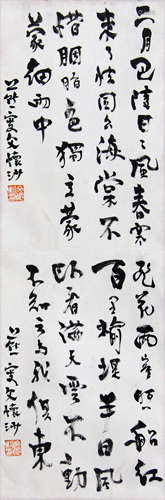 二月巴陵日日風春寒
未了怯園公海棠不
惜胭脂色獨立蒙
蒙細雨中
燕叟文懷沙
飛花兩岸照船紅
百里榆堤半日風
臥看滿天雲不動
不知雲與我俱東
燕叟文懷沙